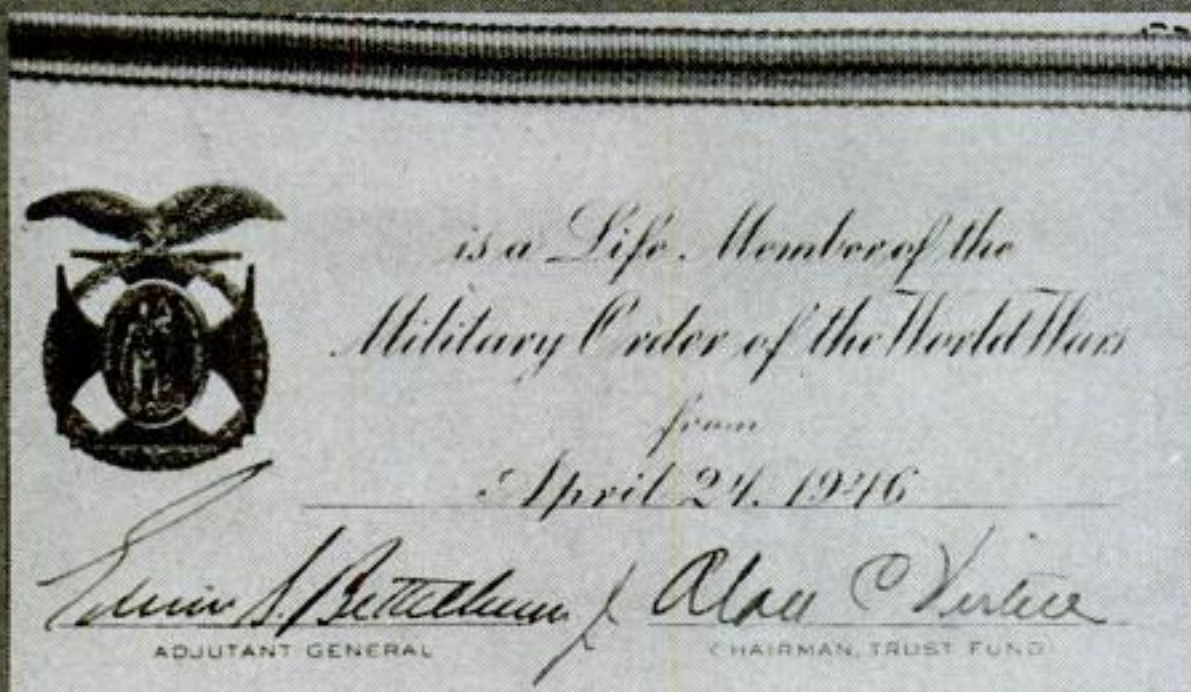 is a Life Member of the
Military Order of the World Wars
from
April 24, 1946
Edwin S. Bettelheim Jr
Alan C Virtue
ADJUTANT GENERAL
CHAIRMAN, TRUST FUND